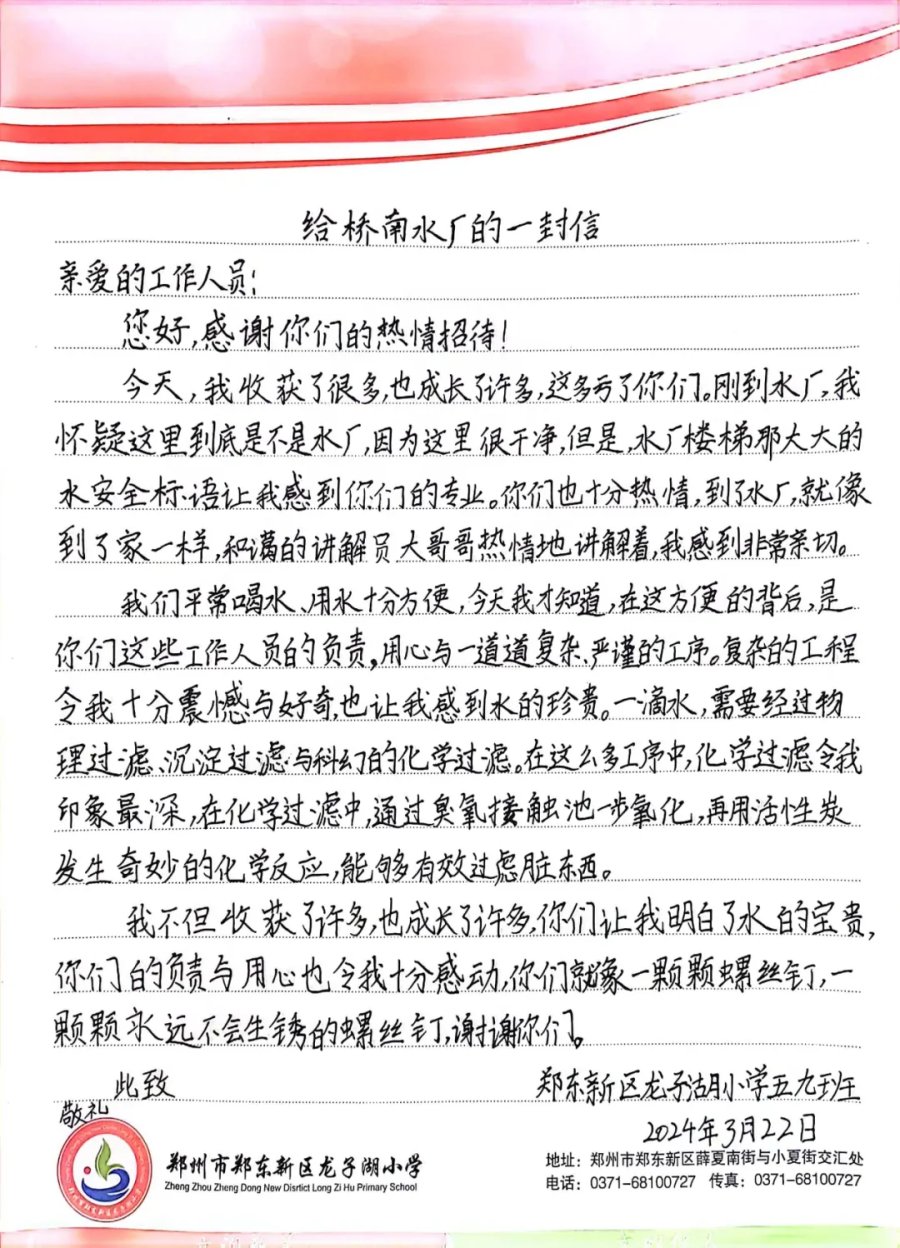 给桥南水厂的一封信
亲爱的工作人员:
您好,感谢你们的热情招待!
今天,我收获了很多,也成长了许多,这多亏了你们。刚到水厂,我
怀疑这里到底是不是水厂,因为这里很干净,但是,水厂楼梯那大大的
水安全标语让我感到你们的专业。你们也十分热情,到了水厂,就像
到了家一样,和蔼的讲解员大哥哥热情地讲解着,我感到非常亲切。
我们平常喝水、用水十分方便,今天我才知道,在这方便的背后,是
你们这些工作人员的负责,用心与一道道复杂、严谨的工序。复杂的工程
令我十分震憾与好奇,也让我感到水的珍贵。一滴水,需要经过物
理过滤、沉淀过滤与科幻的化学过滤。在这么多工序中,化学过滤令我
印象最深,在化学过滤中,通过臭氧接触池一步氧化,再用活性炭
发生奇妙的化学反应,能够有效过虑脏东西。
我不但收获了许多,也成长了许多,你们让我明白了水的宝贵,
你们的负责与用心也令我十分感动,你们就像一颗颗螺丝钉,一
颗颗永远不会生锈的螺丝钉,谢谢你们。
此致 郑东新区龙子湖小学五九班
敬礼
2024年3月22日
郑州市郑东新区龙子湖小学
Zheng Zhou Zheng Dong New Disrtict Long Zi Hu Primary School
地址:郑州市郑东新区薛夏南街与小夏街交汇处
电话:0371-68100727 传真:0371-68100727